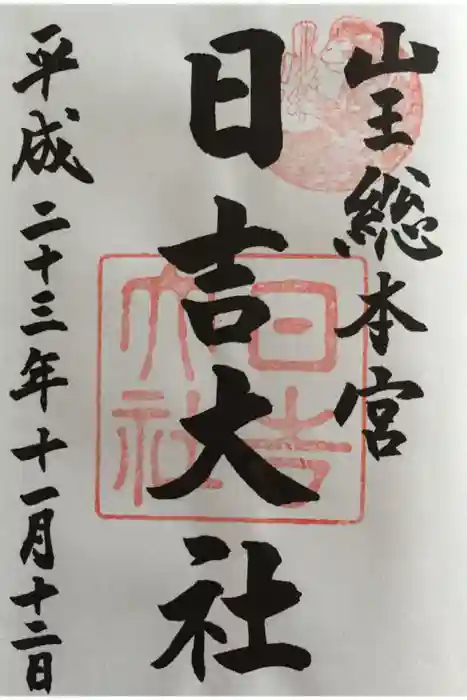 山王総本宮
日吉大社
日吉大社
平成二十三年十一月十二日